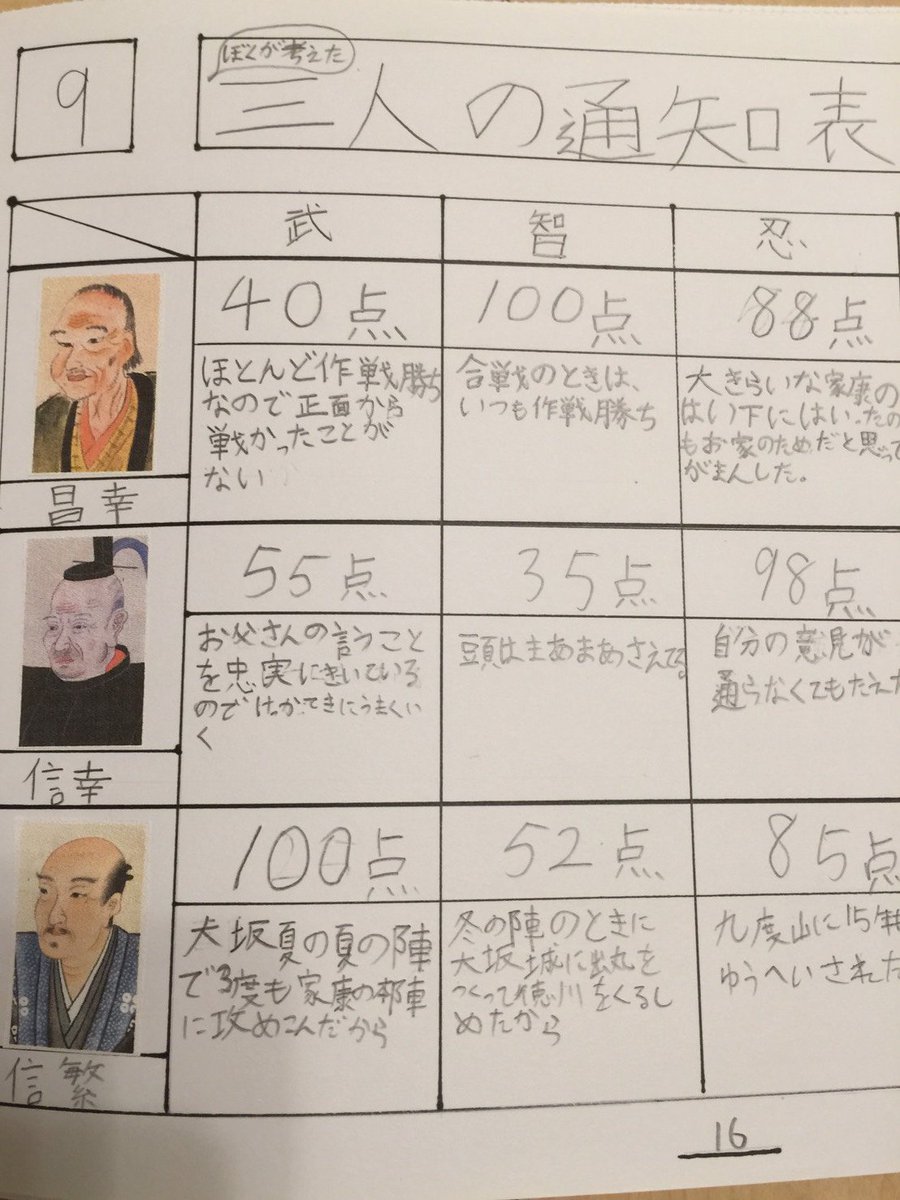 9
ぼくが考えた
三人の通知表
武
智
忍
40点
100点
88点
ほとんど作戦勝ち
なので正面から
戦かったことが
ない
合戦のときは、
いつも作戦勝ち
大きらいな家康の
はい下にはいったの
もお家のためだと思って
がまんした。
昌幸
55点
35点
98点
お父さんの言うこと
を忠実にきいている
のでけっかてきにうまくい
く
頭はまあまあさえてる。
自分の意見が
通らなくてもたえた
信幸
100点
52点
85点
大坂夏の夏の陣
で3度も家康の
に攻めこんだから
冬の陣のときに
大坂城に出丸を
つくって徳川をくるし
めたから
九度山に15年
ゆうへいされた
信繁
16